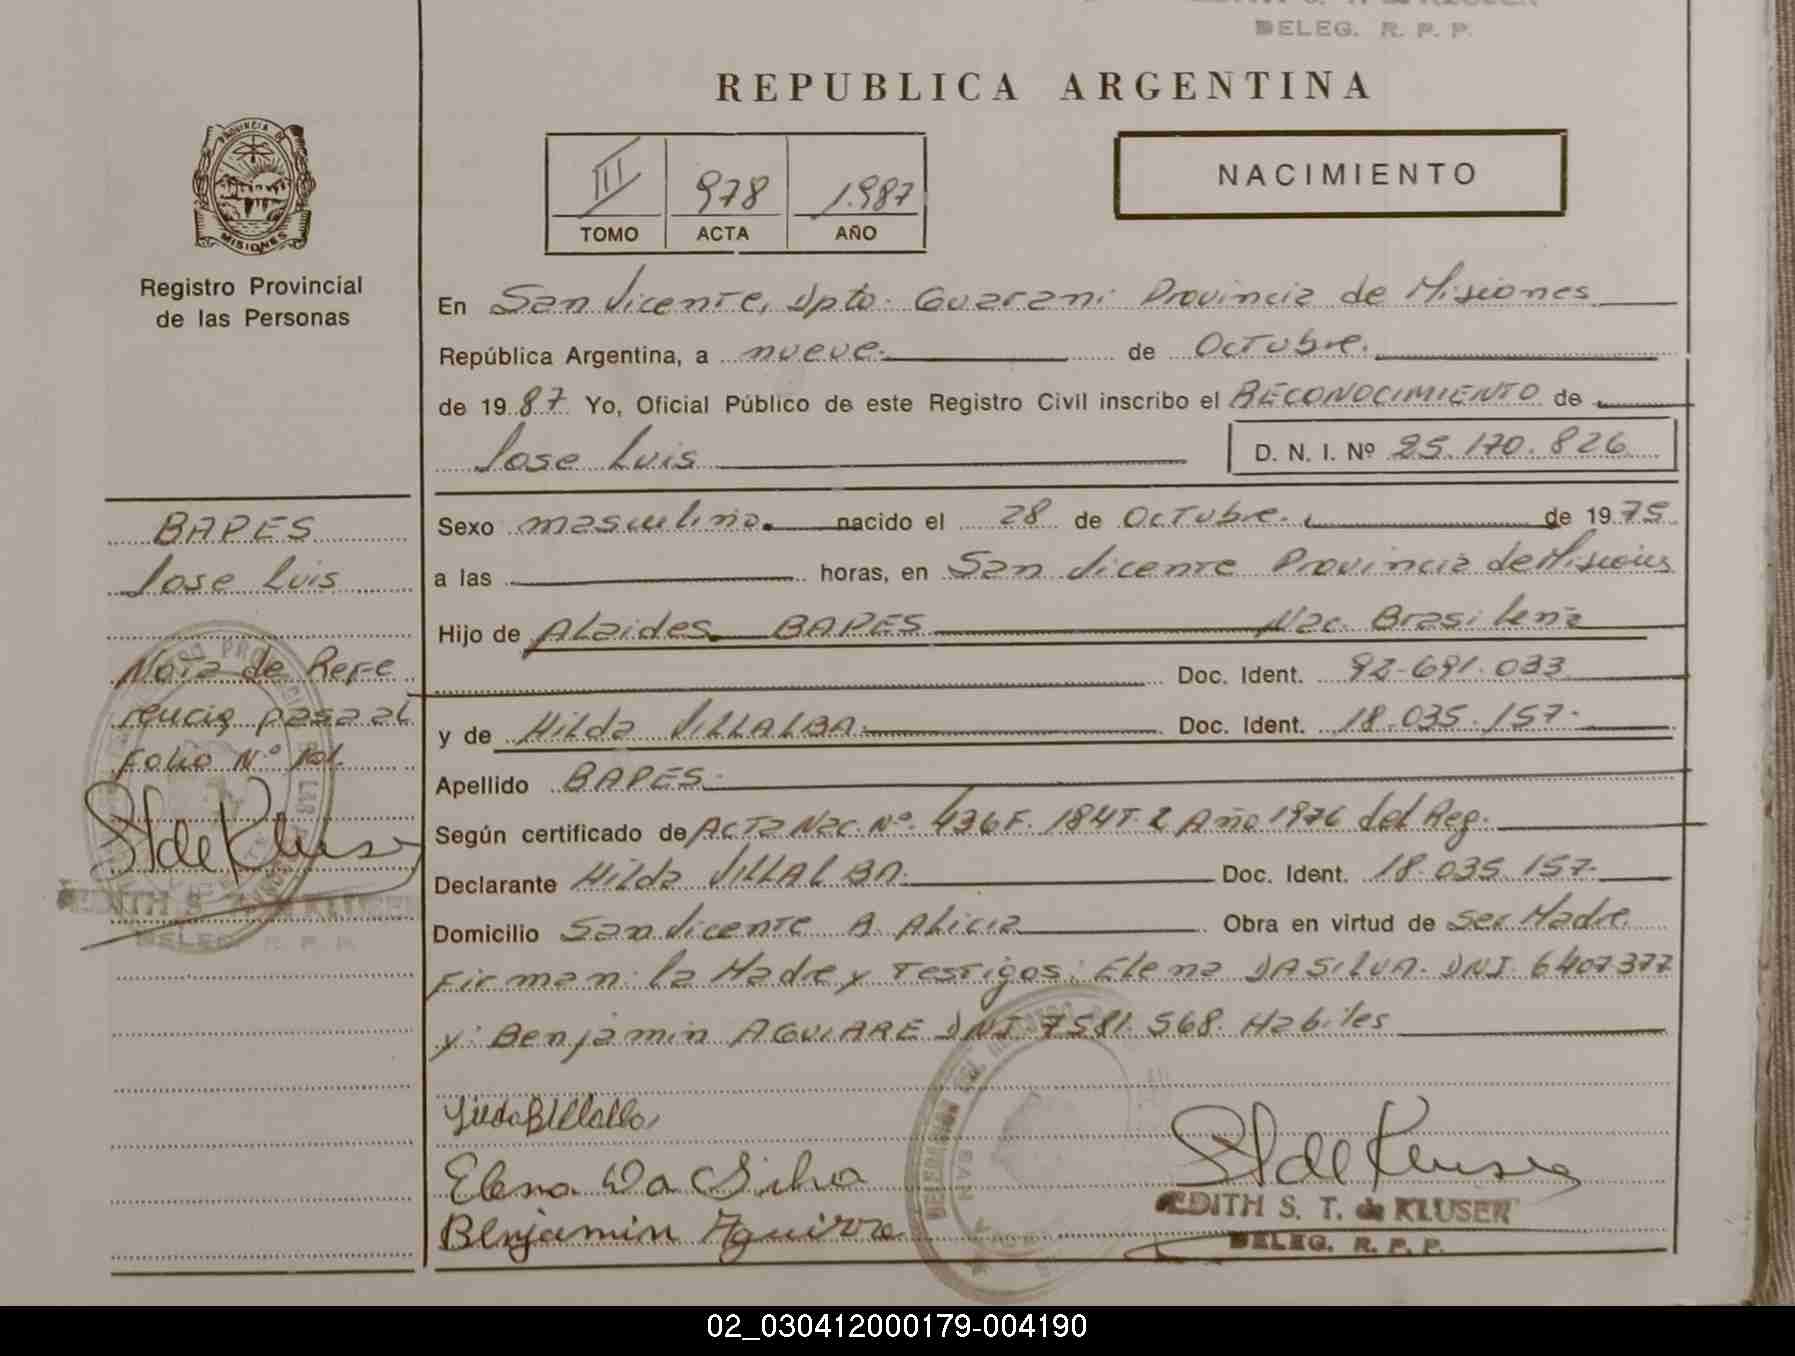 DELEG. R. P. P.
REPUBLICA ARGENTINA
PROVINCIA DE
MISIONES
III 978 1.987
TOMO ACTA AÑO
NACIMIENTO
Registro Provincial
de las Personas
En San Vicente, Dpto. Guarani Provincia de Misiones
República Argentina, a nueve. de Octubre.
de 1987 Yo, Oficial Público de este Registro Civil inscribo el RECONOCIMIENTO de
Jose Luis D. N. I. Nº 25.170.826
Sexo masculino. nacido el 28 de Octubre. de 1975
a las horas, en San Vicente Provincia de Misiones
Hijo de Alaides BAPES Nac. Brasileña
Doc. Ident. 92-691.033
y de Hilda VILLALBA Doc. Ident. 18.035.157.
Apellido BAPES.
Según certificado de Acta Nac. Nº. 436 F. 184 T. 2 Año 1976 del Reg.
Declarante Hilda VILLALBA. Doc. Ident. 18.035.157.
Domicilio San Vicente B Alicia Obra en virtud de ser Madre.
Firman: la Madre y Testigos: Elena DASILVA. DNI 6407377
y: Benjamin AGUIARE DNI 7581.568. Habiles
Elena Da Silva
Benjamin Aguirre
EDITH S. T. de KLUSER
DELEG. R. P. P.
BAPES
Jose Luis
Nota de Refe
rencia pasa al
Folio Nº 101.
EDITH S. T. de KLUSER
DELEG. R. P. P.
02_030412000179-004190